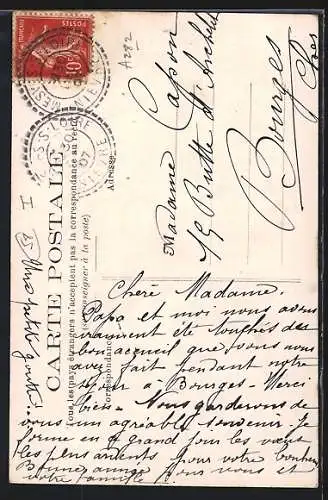 CARTE POSTALE
Tous les pays étrangers n'acceptent pas la correspondance au recto
(se renseigner à la poste)
Correspondance
Adresse
A282
Madame Capon
19 Butte d'Archelet
Bourges
Cher
Chère Madame.
Papa et moi nous avons
vraiment été touchés du
bon accueil que vous nous
avez fait pendant notre
séjour à Bourges - Merci
bien - Nous garderons de
vous un agréable souvenir. Je
forme en grand jour les vœux
les plus ardents pour votre bonheur
Bonne année pour vous et
votre famille
I
POSTES
10
07